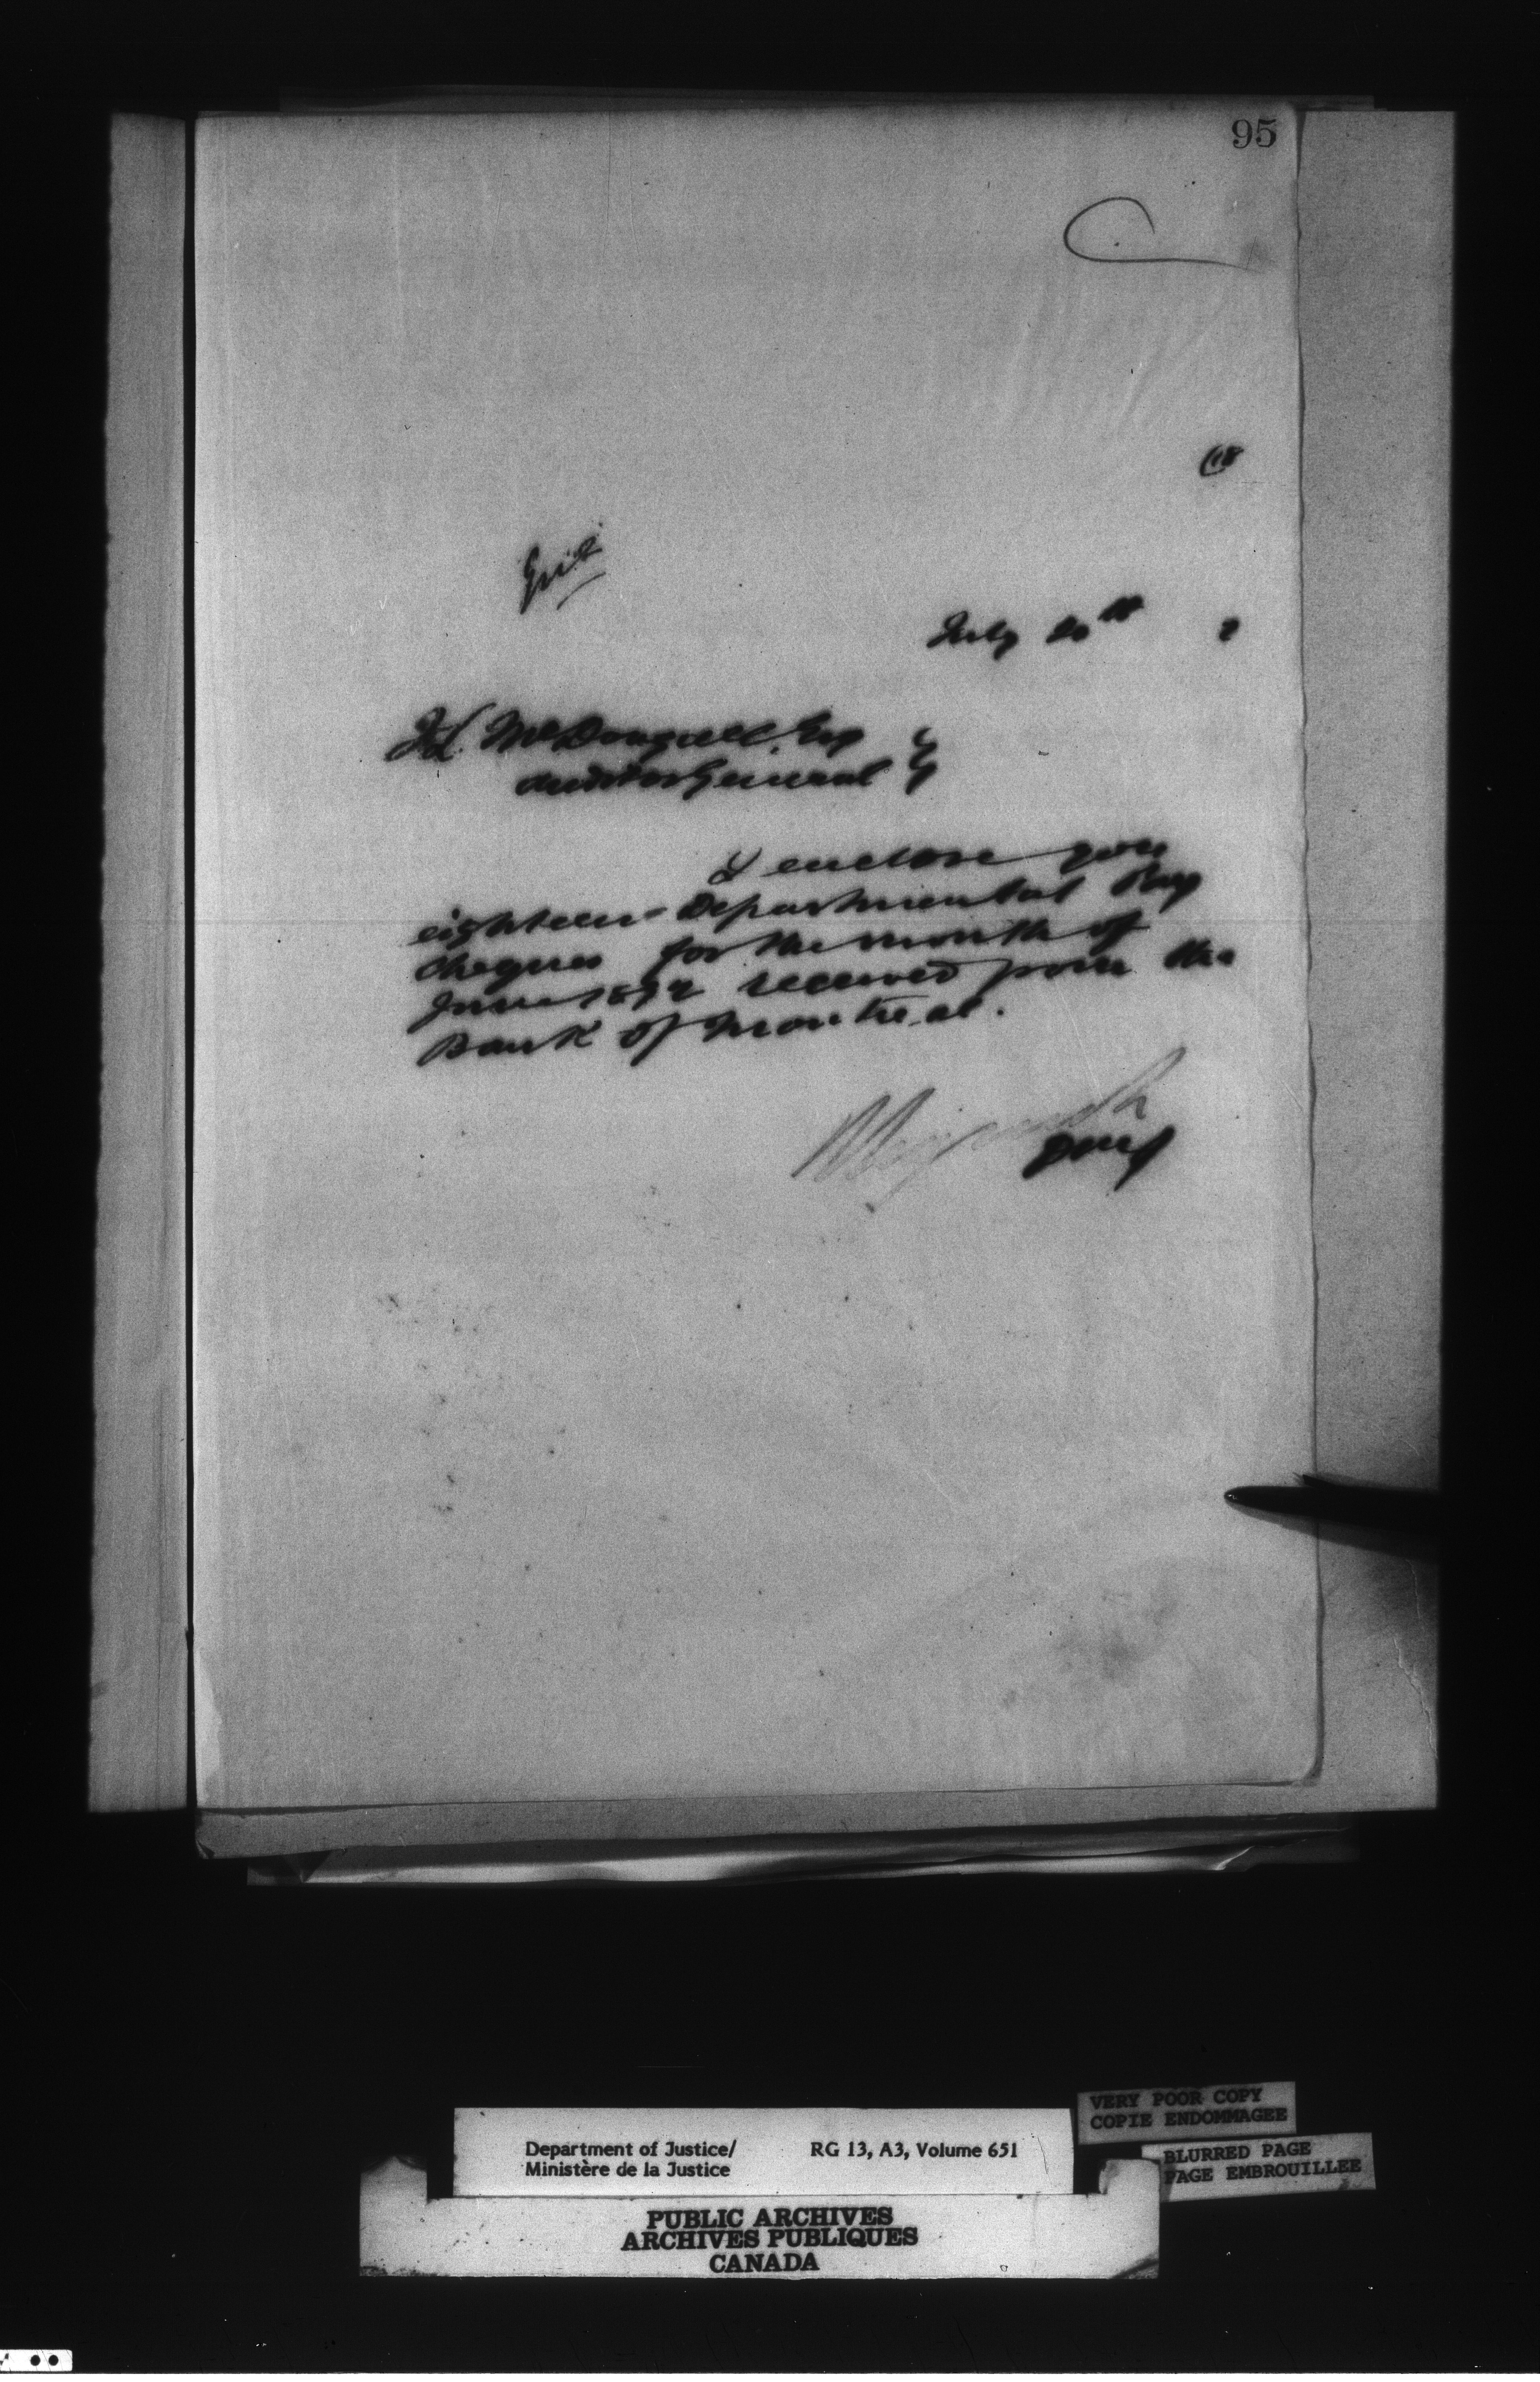 95
July 20th 2
J L McDougall Esq
Auditor General
I enclose you
eighteen Departmental Pay
cheques for the month of
June 1892 received from the
Bank of Montreal.
VERY POOR COPY
COPIE ENDOMMAGEE
Department of Justice/ RG 13, A3, Volume 651
Ministère de la Justice
BLURRED PAGE
PAGE EMBROUILLEE
PUBLIC ARCHIVES
ARCHIVES PUBLIQUES
CANADA